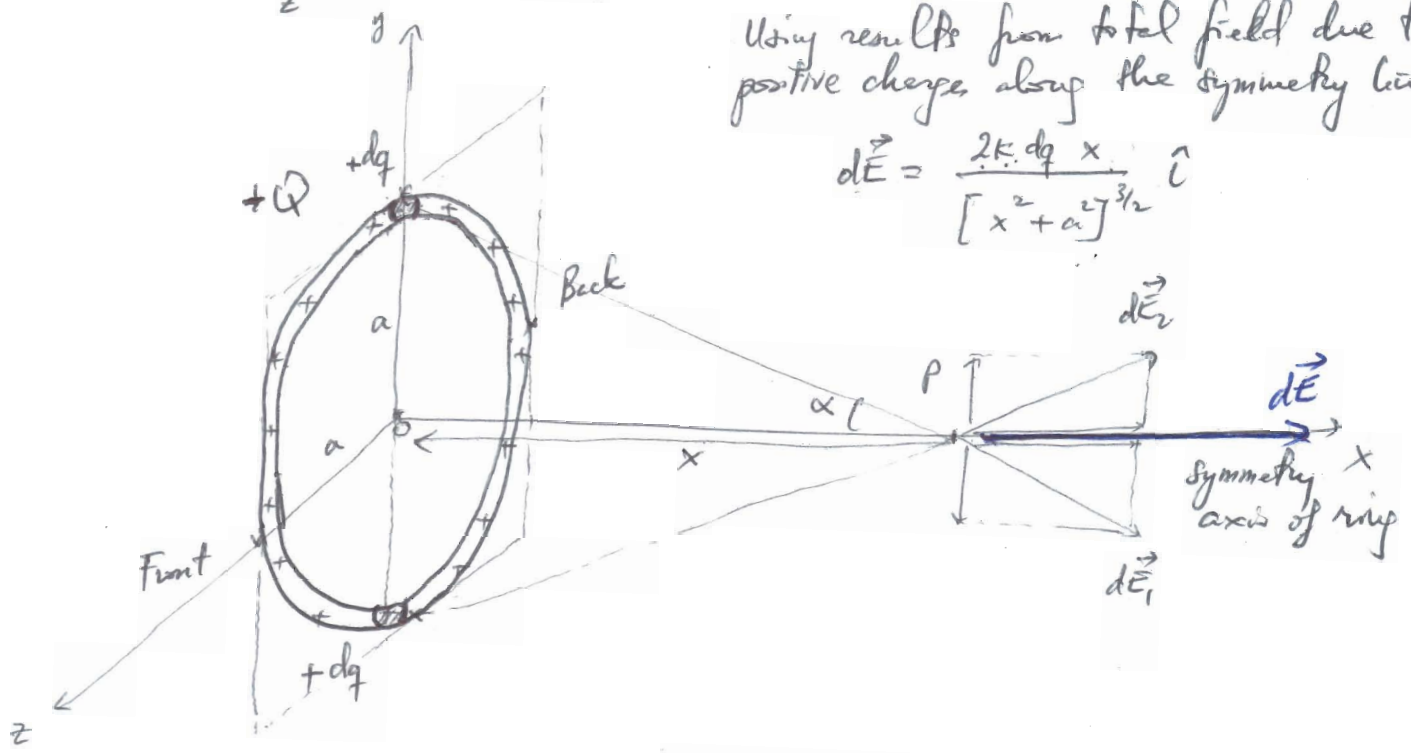 z
y
Using results from total field due t
positive charges along the symmetry li
dE⃗ = 2k dq x / [x² + a²]^3/2 î
+dq
+Q
Back
a
dE⃗₂
P
α
dE⃗
O
a
x
X
symmetry
axis of ring
Front
dE⃗₁
+dq
z